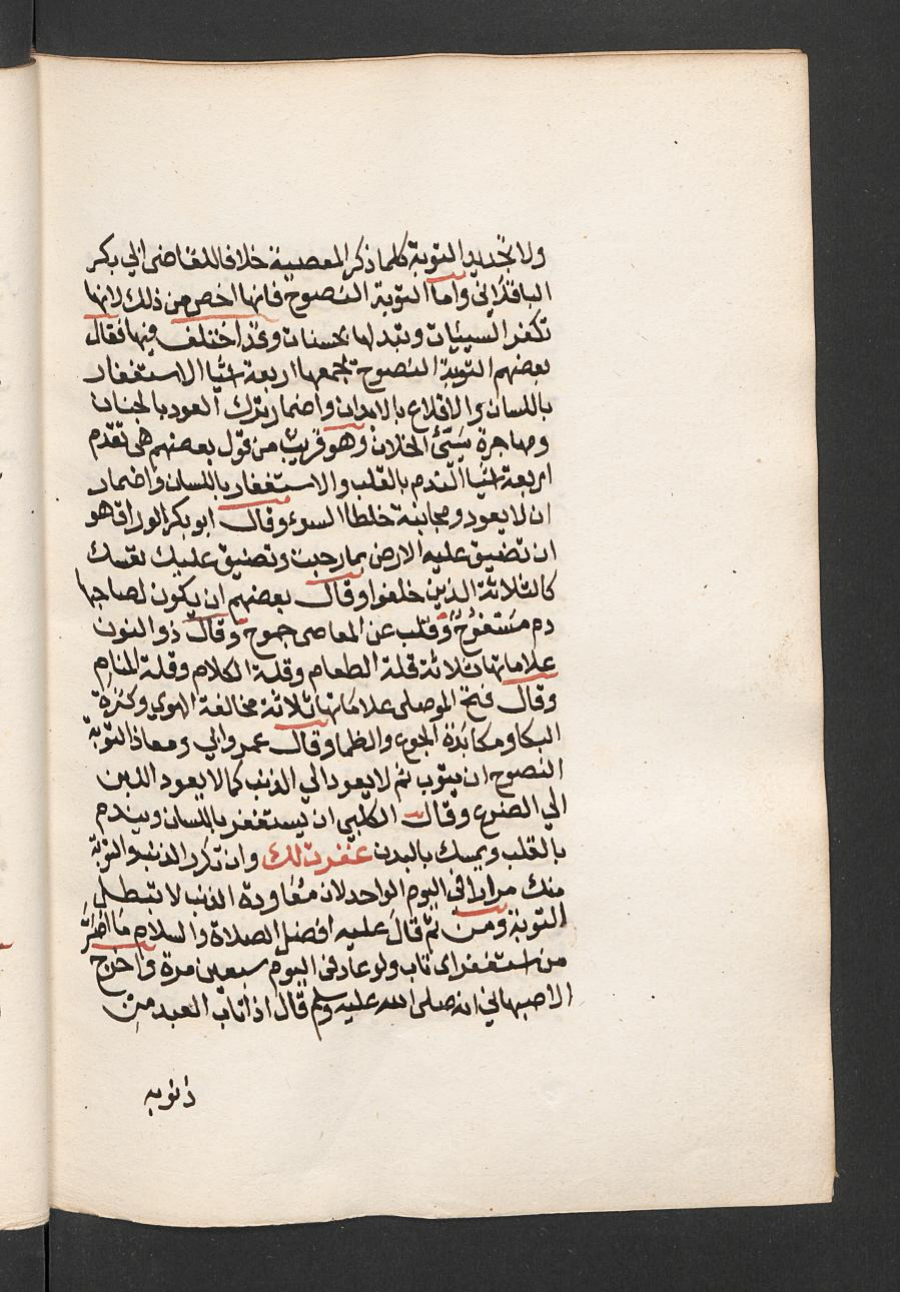 ولا تجديد التوبة كلما ذكر المعصية خلافا للقاضى ابي بكر
الباقلاني واما التوبة النصوح فانها اخص من ذلك لانها
تكفر السيئات وتبدلها بحسنات وقد اختلف فيها فقال
بعضهم التوبة النصوح تجمعها اربعة اشيا الاستغفار
باللسان والاقلاع بالابدان واضمار ترك العود بالجنان
ومهاجرة سيّئ الخلان وهو قريب من قول بعضهم هى تقدم
اربعة اشيا الندم بالقلب والاستغفار باللسان واضمار
ان لا يعود ومجانبة خلطا السوء وقال ابو بكر الوراق هو
ان تضيق عليه الارض بما رحبت وتضيق عليك نفسك
كالثلاثة الذين خلفوا وقال بعضهم ان يكون لصاحبها
دم مسفوح وقلب عن المعاصى جموح وقال ذو النون
علاماتها ثلاثة قلة الطعام وقلة الكلام وقلة المنام
وقال فتح الموصلى علاماتها ثلاثة مخالفة الهوي وكثرة
البكا ومكابدة الجوع والظما وقال عمر وابي ومعاذ التوبة
النصوح ان يتوب ثم لا يعود الي الذنب كما لا يعود اللبن
الي الضرع وقال الكلبي ان يستغفر باللسان ويندم
بالقلب ويمسك بالبدن غفرت لك وان تكرر الذنب والتوبة
منك مرارا في اليوم الواحد لان معاودة الذنب لا تبطل
التوبة ومن ثم قال عليه افضل الصلاة والسلام ما اصَرَّ
من استغفر اى تاب ولو عاد في اليوم سبعين مرة واخرج
الاصبهاني انه صلى الله عليه وسلم قال اذا تاب العبد من
ذنوبه